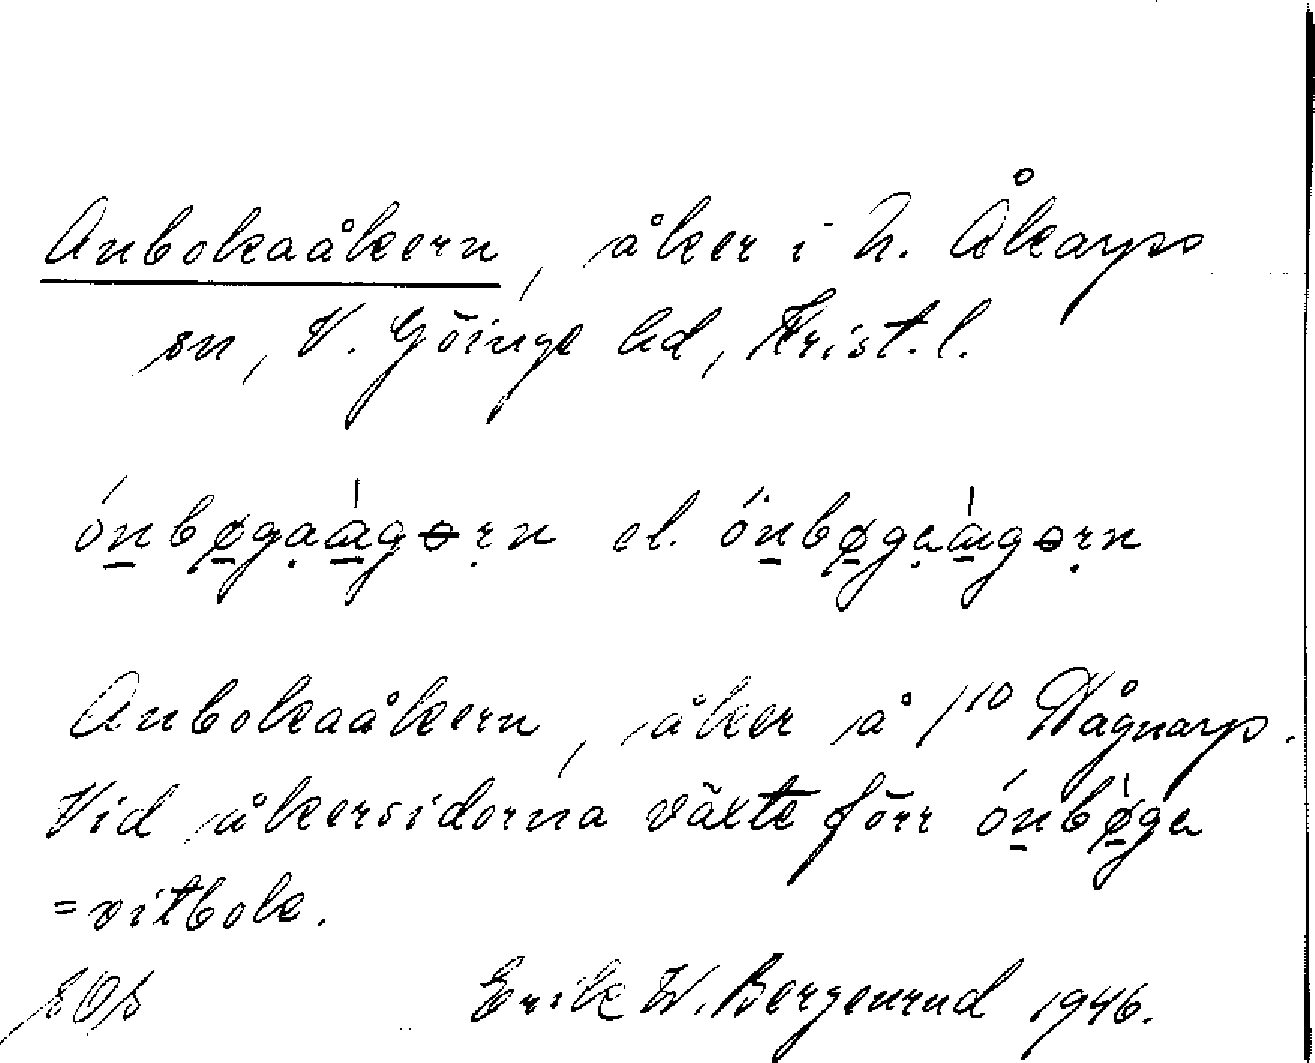 Anbokaåkern, åker i N. Åkarps
sn, V. Göinge hd, Krist. l.
ónbøgaàgərn el. ónbøgaàgərn
Anbokaåkern, åker å 1¹⁰ Vågnarp.
Vid åkersidorna växte förr ónbøga
=vitbok.
Erik W. Bergenrud 1946.